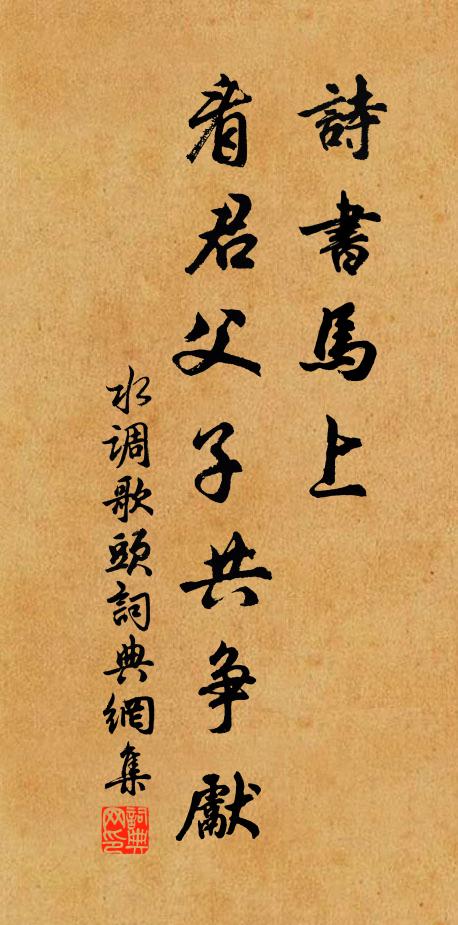 詩書馬上
看君父子共争獻
水调歌頭詞典網集
詞典
网印